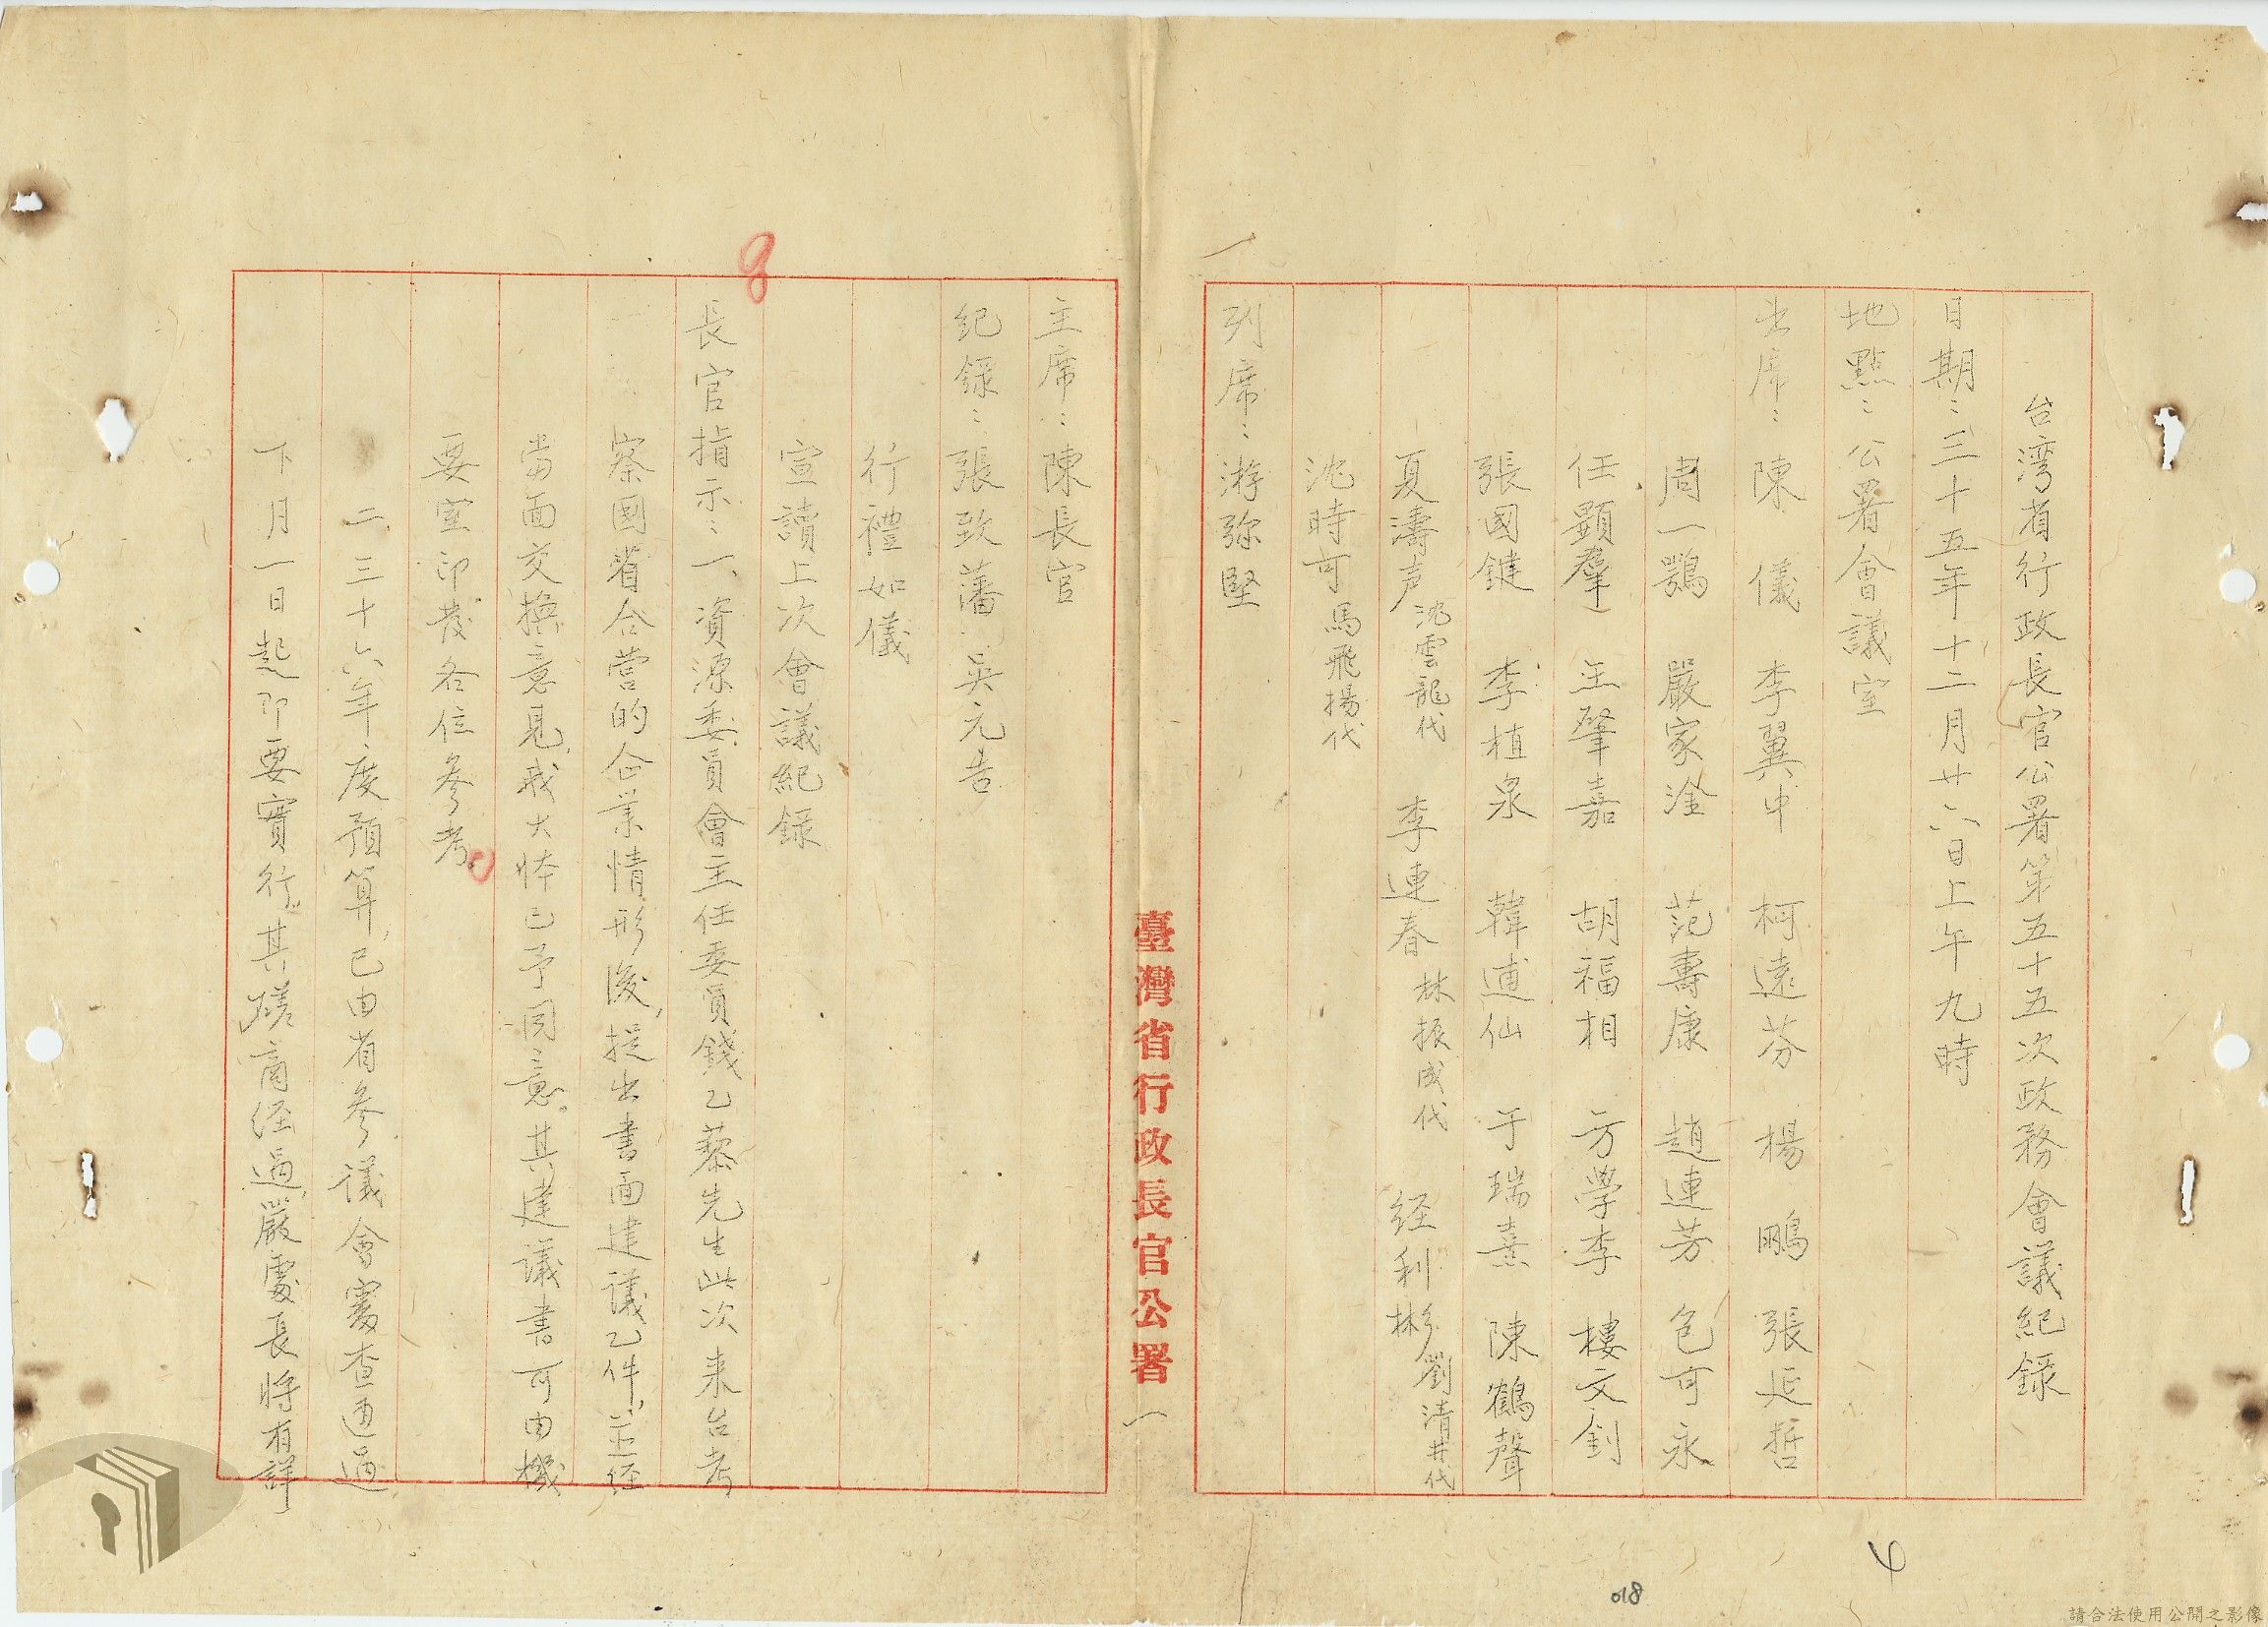 台湾省行政長官公署第五十五次政務會議紀錄
日期：三十五年十二月廿六日上午九時
地點：公署會議室
出席：陳　儀　李翼中　柯遠芬　楊　鵬　張延哲
周一鶚　嚴家淦　范壽康　趙連芳　包可永
任顯羣　王肇嘉　胡福相　方學李　樓文釗
張國鍵　李植泉　韓逋仙　于瑞熹　陳鶴聲
夏濤声 沈雲龍代　李連春 林振成代　经利彬 劉清井代
沈時可 馬飛揚代
列席：游弥堅
一
臺灣省行政長官公署
一
主席：陳長官
紀錄：張致藩　吳元告
行禮如儀
宣讀上次會議紀錄
長官指示：一、資源委員會主任委員錢乙藜先生此次来台考
察國省合营的企業情形後，提出書面建議乙件，並经
當面交换意見，我大体已予同意。其建議書可由機
要室印發各位參考。
二三十六年度預算，已由省參議會審查通過
下月一日起即要實行。其磋商经過，嚴處長将有詳
8
4
018
請合法使用公開之影像